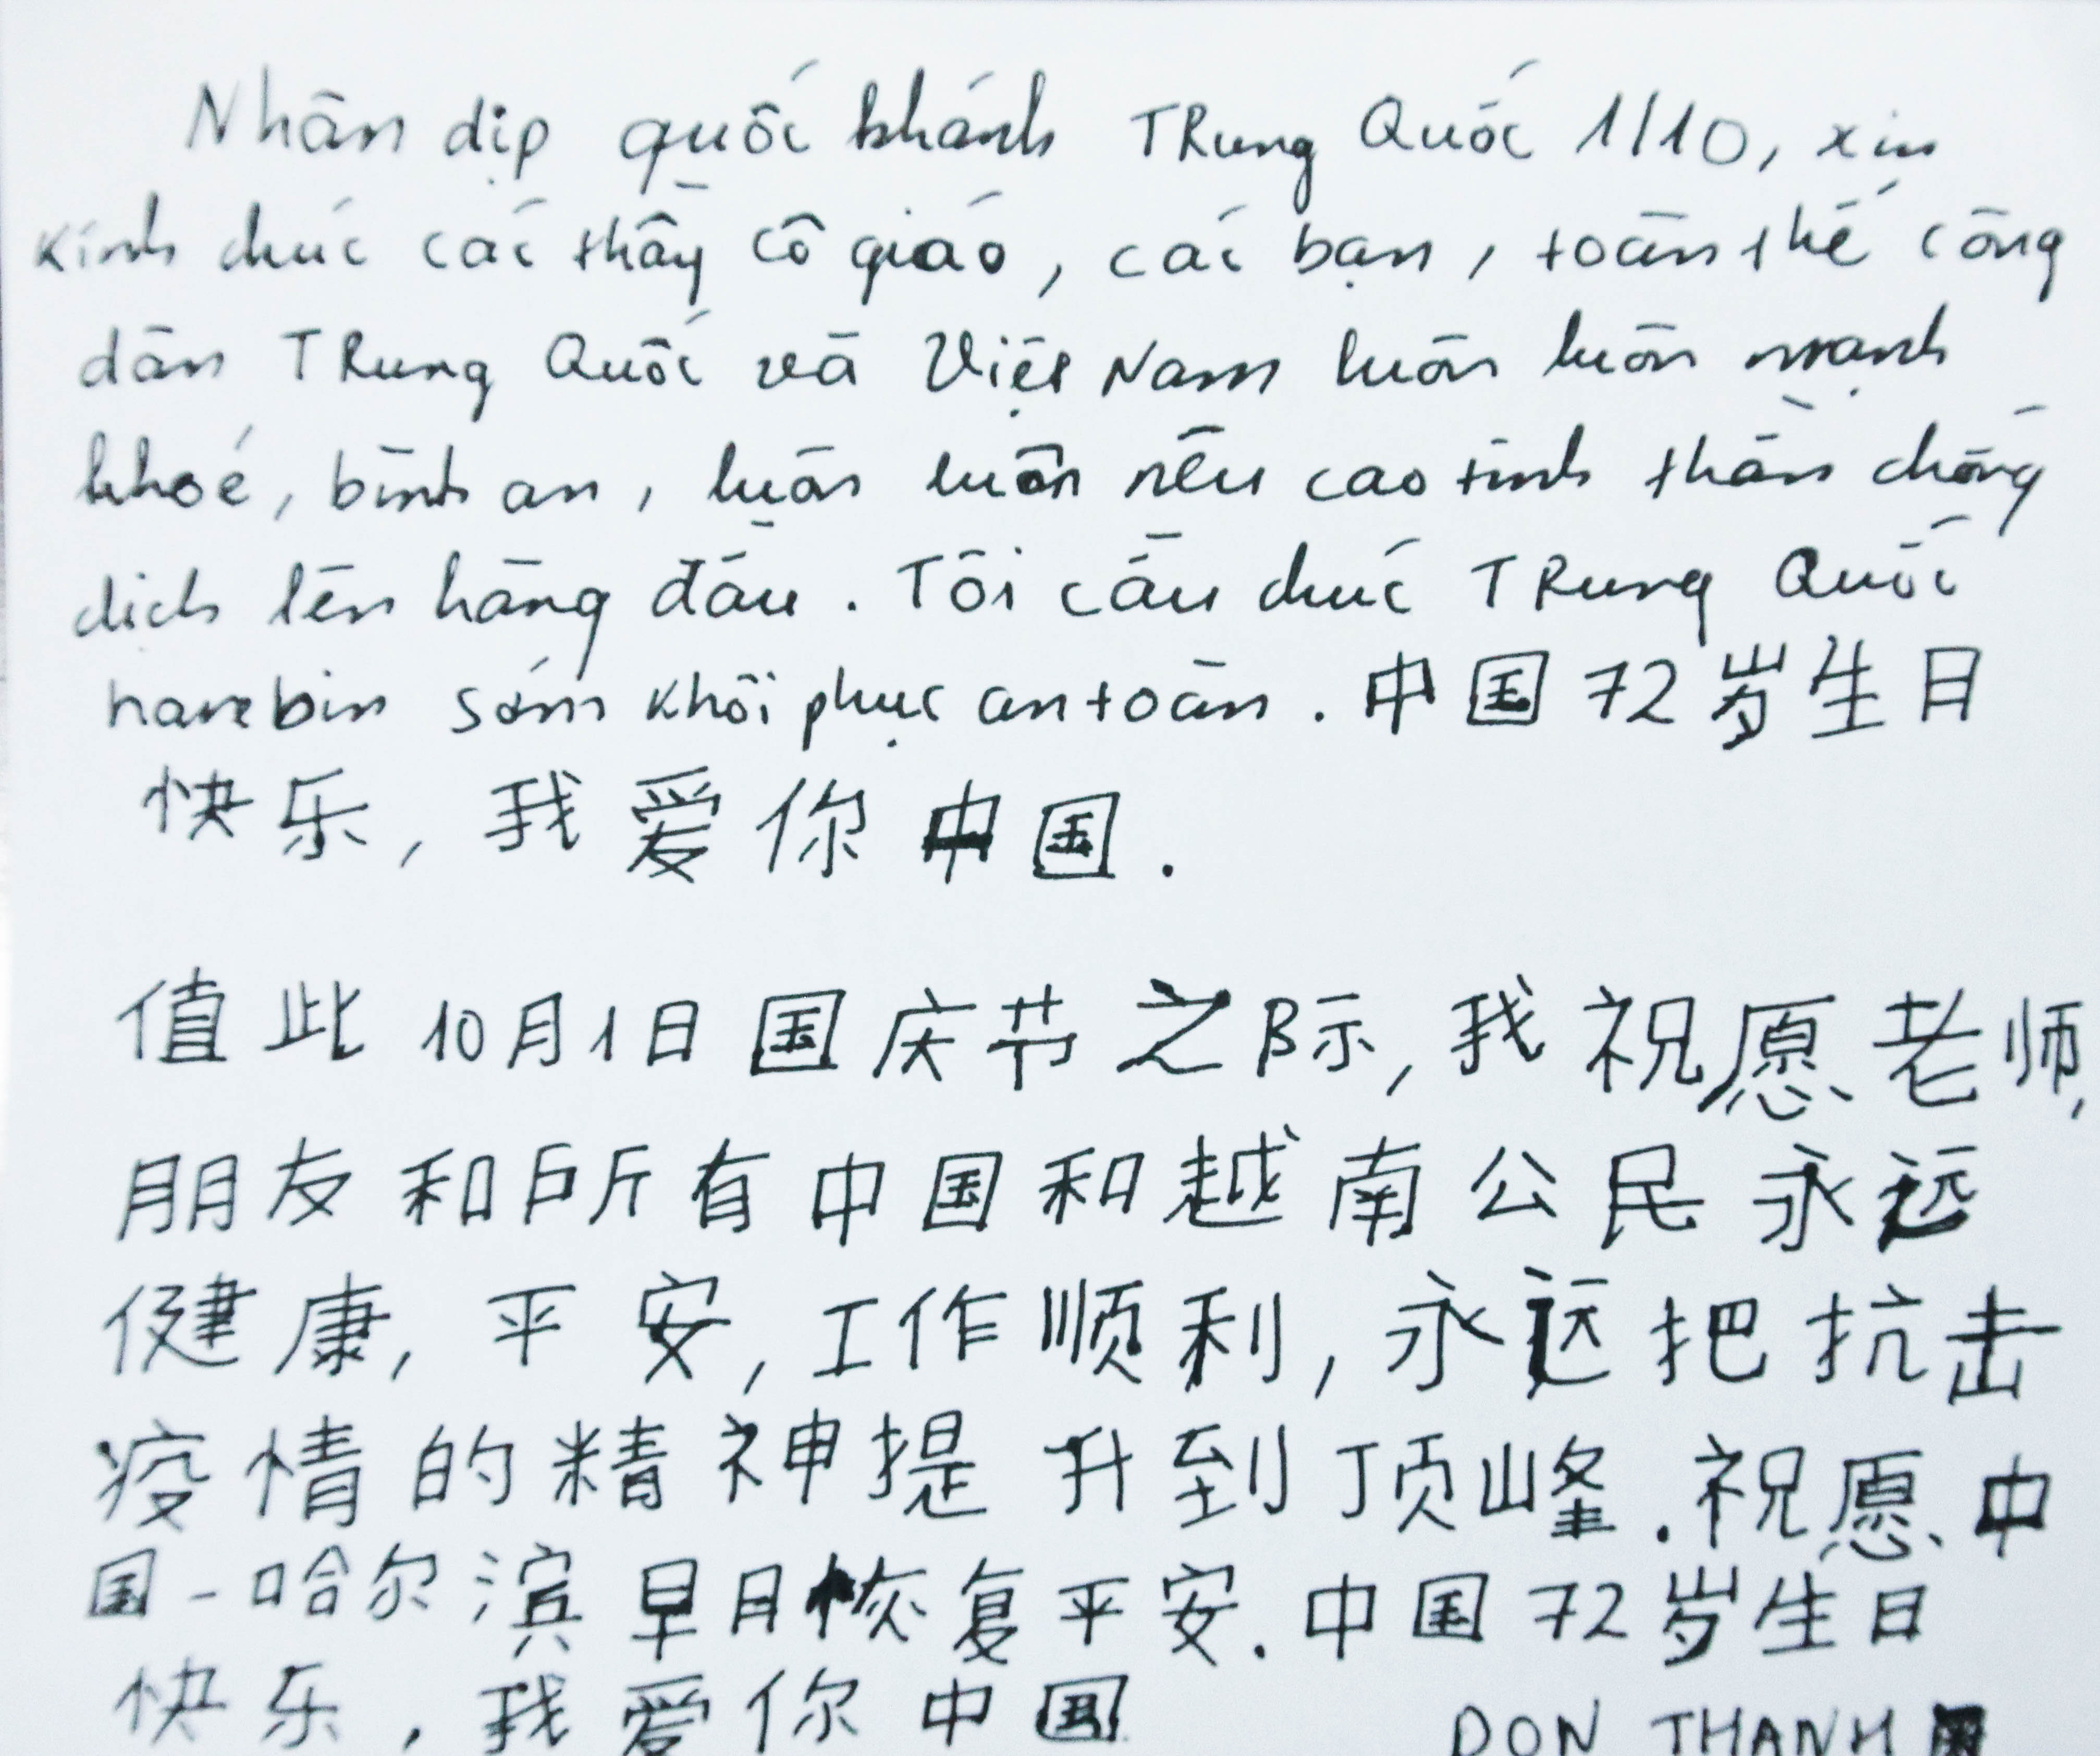 Nhân dịp quốc khánh TRung Quốc 1/10, xin
kính chúc các thầy cô giáo, các bạn, toàn thể công
dân TRung Quốc và Việt Nam luôn luôn mạnh
khoẻ, bình an, luôn luôn nêu cao tinh thần chống
dịch lên hàng đầu. Tôi cầu chúc TRung Quốc
harebin sớm khôi phục an toàn. 中国72岁生日
快乐, 我爱你中国.
值此10月1日国庆节之际, 我祝愿老师,
朋友和所有中国和越南公民永远
健康, 平安, 工作顺利, 永远把抗击
疫情的精神提升到顶峰. 祝愿中
国-哈尔滨早日恢复平安. 中国72岁生日
快乐, 我爱你中国
DON THANH